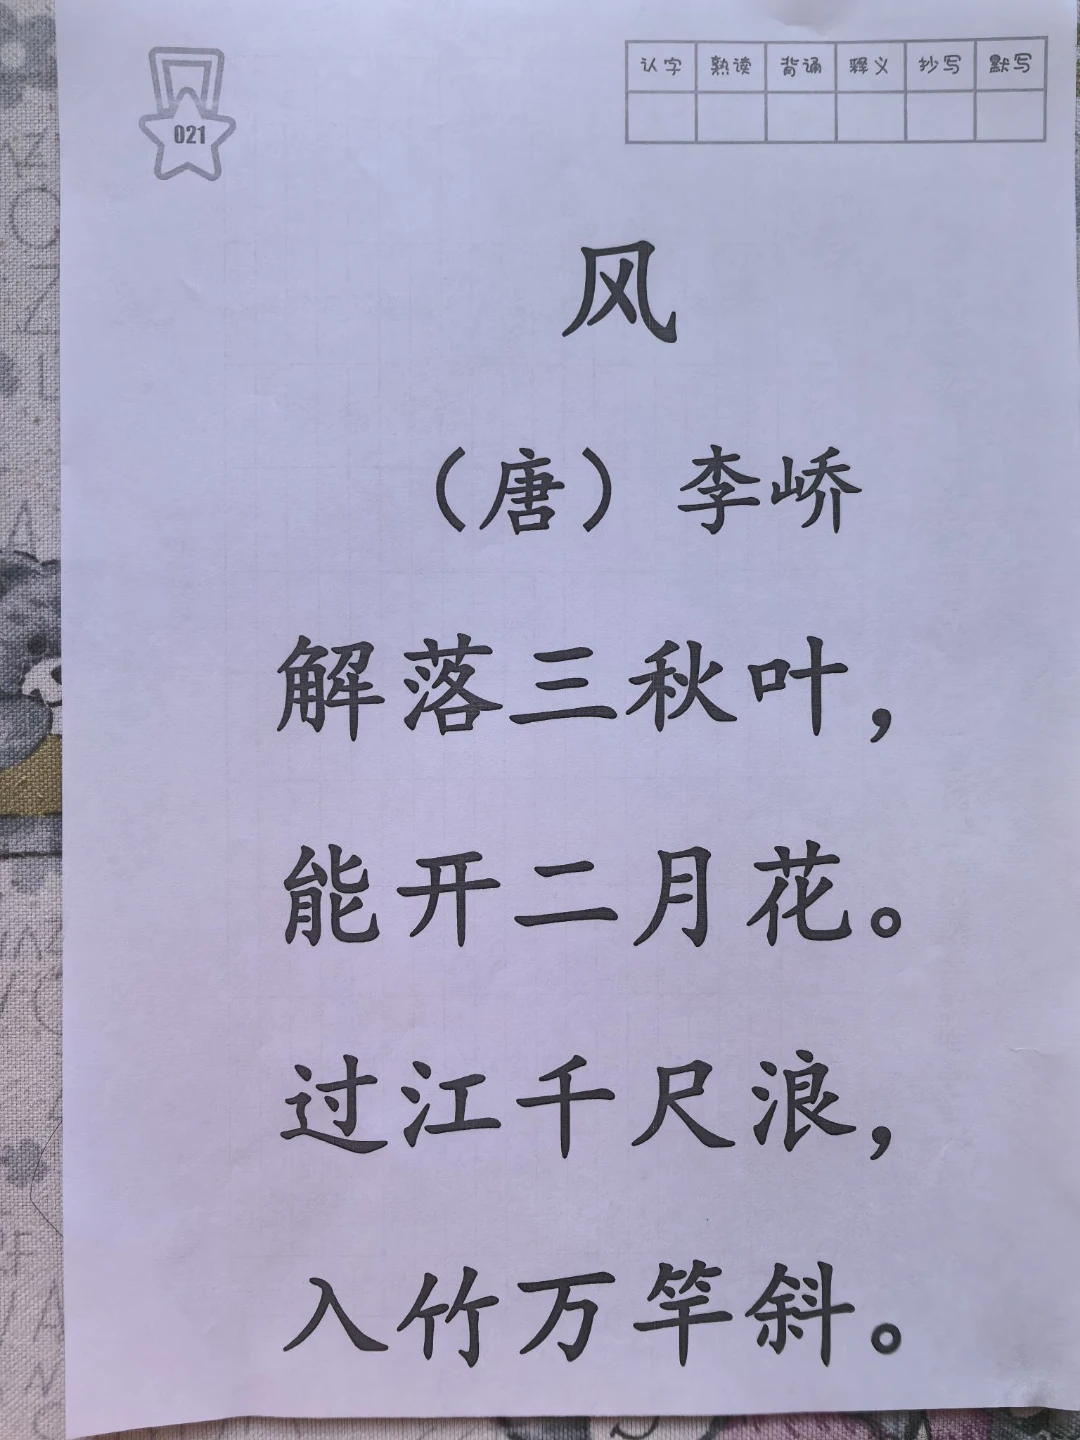 021
认字 熟读 背诵 释义 抄写 默写
风
（唐）李峤
解落三秋叶，
能开二月花。
过江千尺浪，
入竹万竿斜。